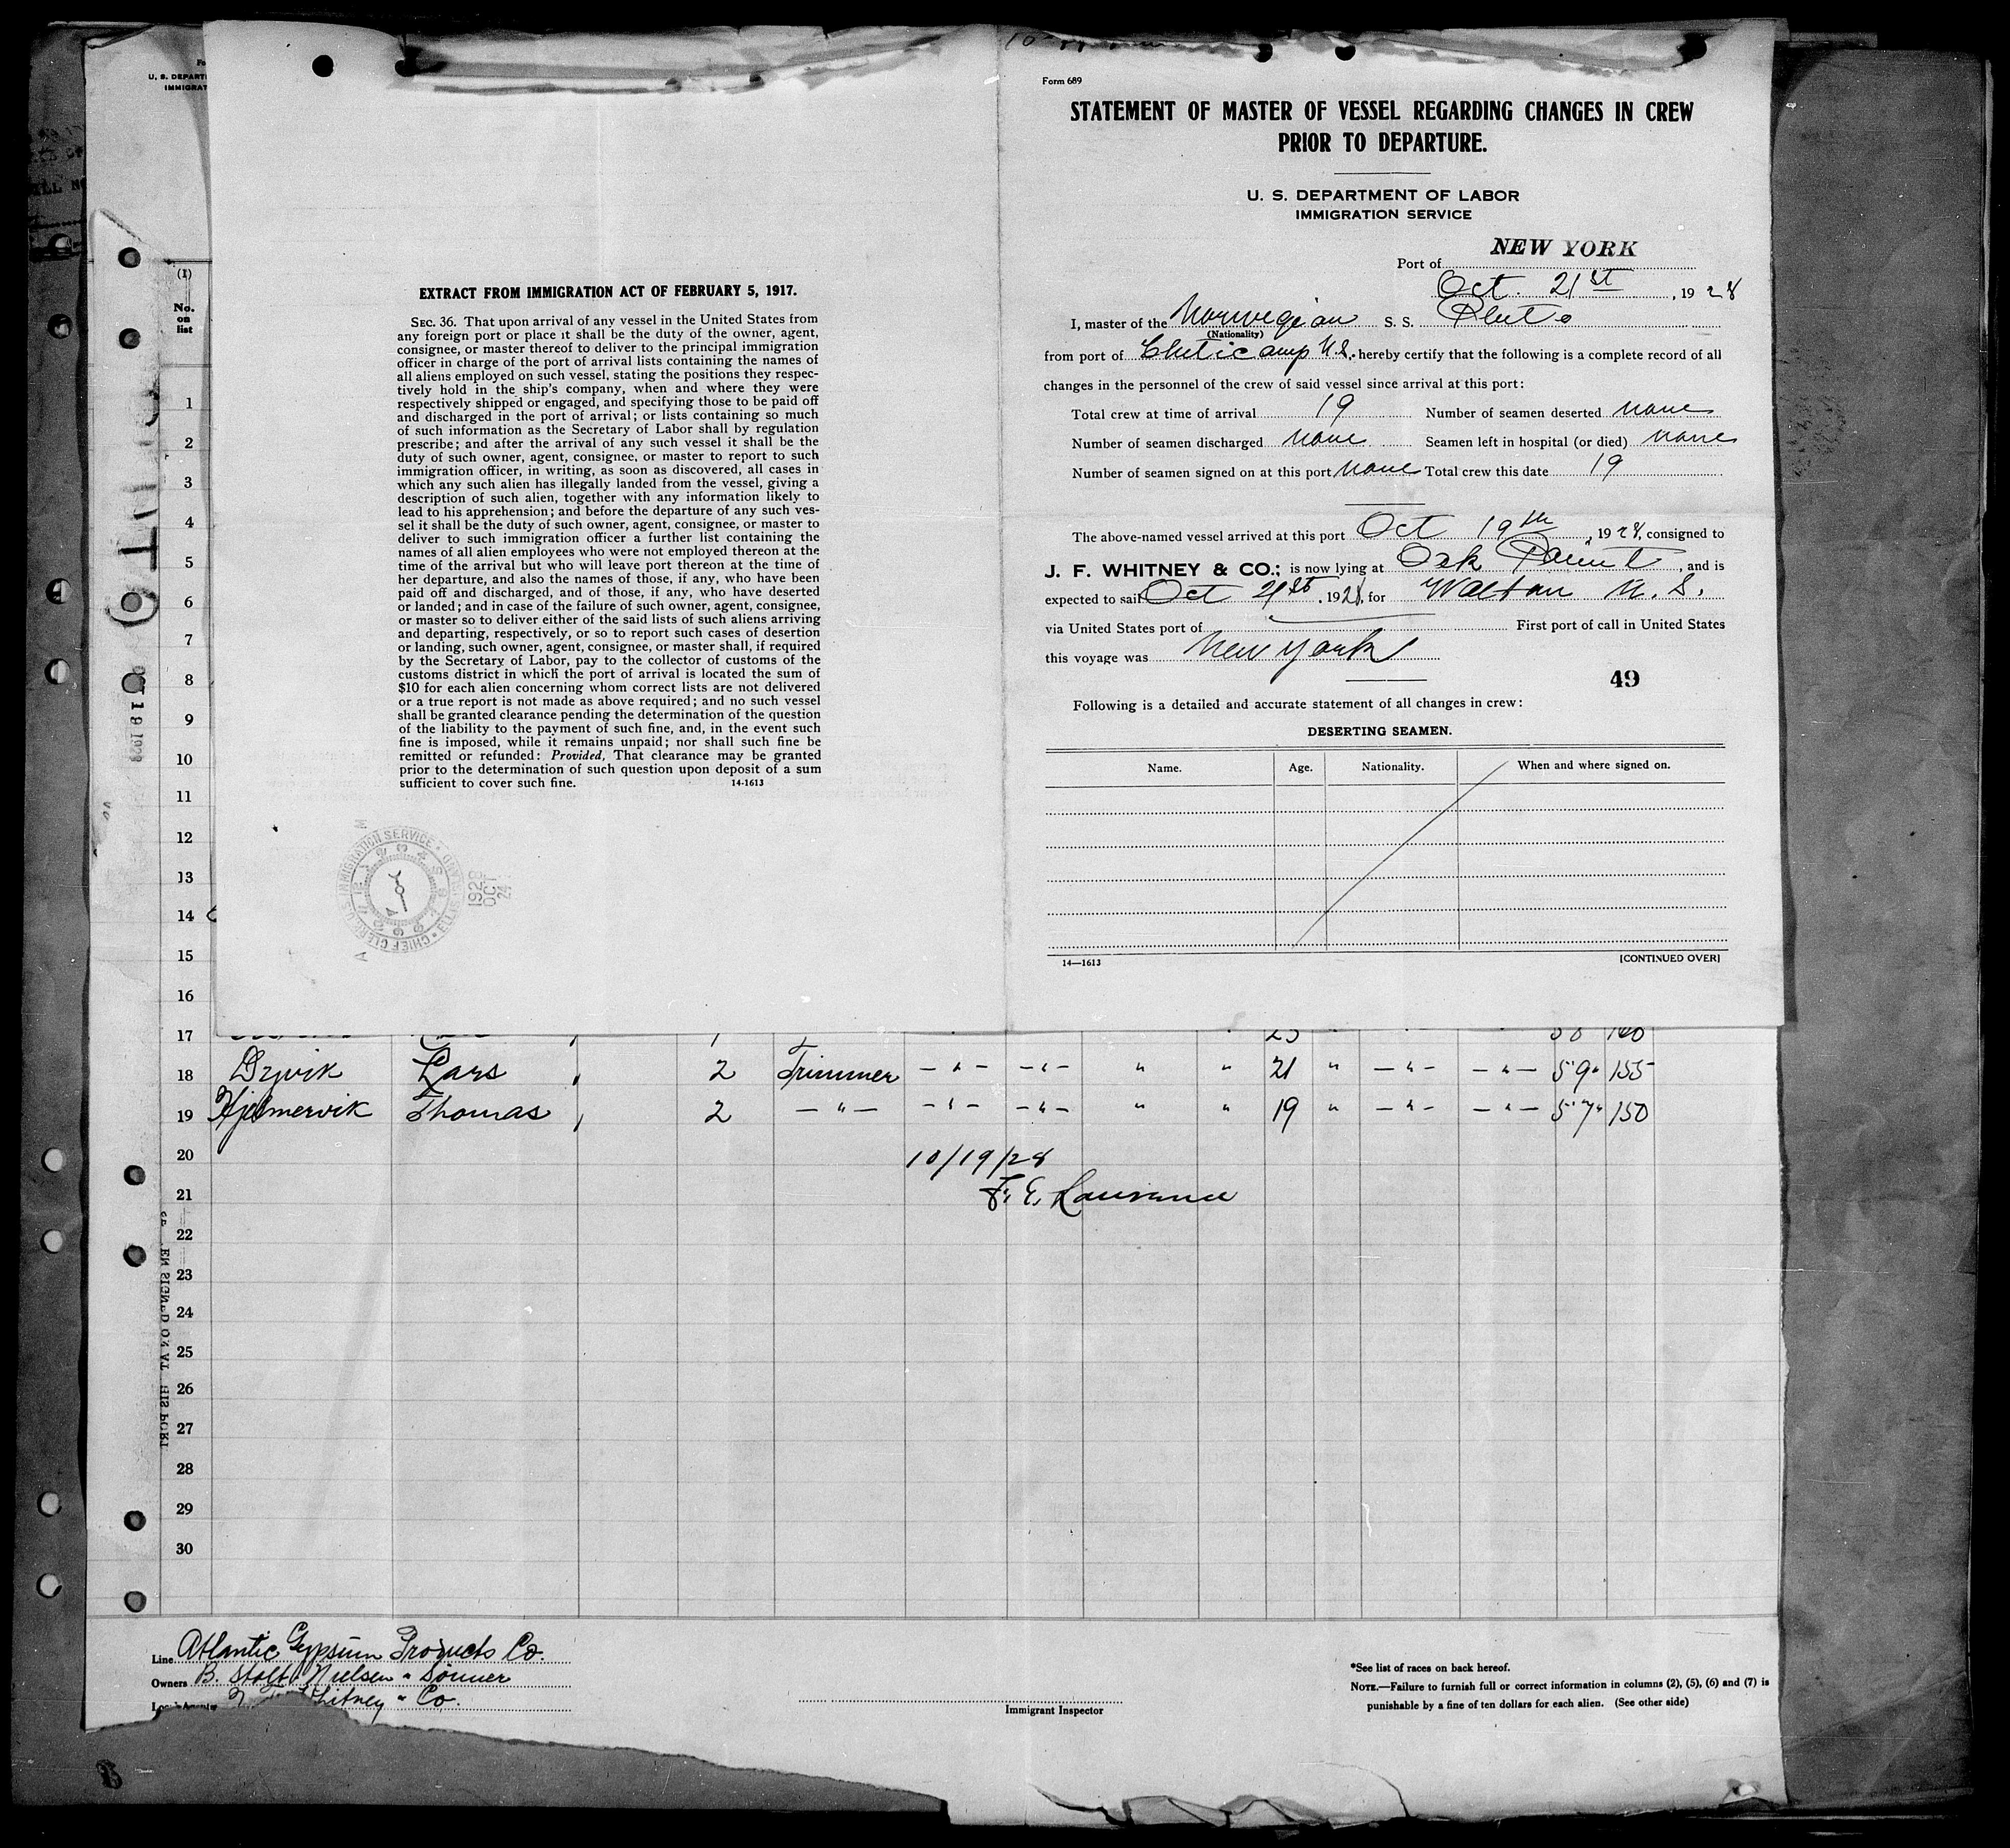 Form 689
STATEMENT OF MASTER OF VESSEL REGARDING CHANGES IN CREW
PRIOR TO DEPARTURE.
U. S. DEPARTMENT OF LABOR
IMMIGRATION SERVICE
NEW YORK
Port of
Oct. 21st, 1928
I, master of the Norwegian S. S. Pluto
(Nationality)
from port of Cheticamp N.S. hereby certify that the following is a complete record of all
changes in the personnel of the crew of said vessel since arrival at this port:
Total crew at time of arrival 19 Number of seamen deserted none
Number of seamen discharged none Seamen left in hospital (or died) none
Number of seamen signed on at this port none Total crew this date 19
The above-named vessel arrived at this port Oct 19th, 1928, consigned to
J. F. WHITNEY & CO.; is now lying at Oak Point, and is
expected to sail Oct 21st, 1928, for Walton N. S.
via United States port of First port of call in United States
this voyage was New York
49
Following is a detailed and accurate statement of all changes in crew:
DESERTING SEAMEN.
Name. Age. Nationality. When and where signed on.
14—1613 [CONTINUED OVER]
EXTRACT FROM IMMIGRATION ACT OF FEBRUARY 5, 1917.
SEC. 36. That upon arrival of any vessel in the United States from
any foreign port or place it shall be the duty of the owner, agent,
consignee, or master thereof to deliver to the principal immigration
officer in charge of the port of arrival lists containing the names of
all aliens employed on such vessel, stating the positions they respec-
tively hold in the ship's company, when and where they were
respectively shipped or engaged, and specifying those to be paid off
and discharged in the port of arrival; or lists containing so much
of such information as the Secretary of Labor shall by regulation
prescribe; and after the arrival of any such vessel it shall be the
duty of such owner, agent, consignee, or master to report to such
immigration officer, in writing, as soon as discovered, all cases in
which any such alien has illegally landed from the vessel, giving a
description of such alien, together with any information likely to
lead to his apprehension; and before the departure of any such ves-
sel it shall be the duty of such owner, agent, consignee, or master to
deliver to such immigration officer a further list containing the
names of all alien employees who were not employed thereon at the
time of the arrival but who will leave port thereon at the time of
her departure, and also the names of those, if any, who have been
paid off and discharged, and of those, if any, who have deserted
or landed; and in case of the failure of such owner, agent, consignee,
or master so to deliver either of the said lists of such aliens arriving
and departing, respectively, or so to report such cases of desertion
or landing, such owner, agent, consignee, or master shall, if required
by the Secretary of Labor, pay to the collector of customs of the
customs district in which the port of arrival is located the sum of
$10 for each alien concerning whom correct lists are not delivered
or a true report is not made as above required; and no such vessel
shall be granted clearance pending the determination of the question
of the liability to the payment of such fine, and, in the event such
fine is imposed, while it remains unpaid; nor shall such fine be
remitted or refunded: Provided, That clearance may be granted
prior to the determination of such question upon deposit of a sum
sufficient to cover such fine. 14-1613
1928
OCT
24
(1)
No.
on
list
1
2
3
4
5
6
7
8
9
10
11
12
13
14
15
16
17
18 Lars 2 Trimmer — " — — " — " " 21 " — " — — " — 5'9" 155
19 Hjelmervik Thomas 2 — " — — " — — " — " " 19 " — " — — " — 5'7" 150
20 10/19/28
21 F. E. Lawrence
22
23
24
25
26
27
28
29
30
Line Atlantic Gypsum Products Co.
Owners B. Stolt Nielsen & Sonner
Whitney & Co.
Immigrant Inspector
*See list of races on back hereof.
NOTE.—Failure to furnish full or correct information in columns (2), (5), (6) and (7) is
punishable by a fine of ten dollars for each alien. (See other side)